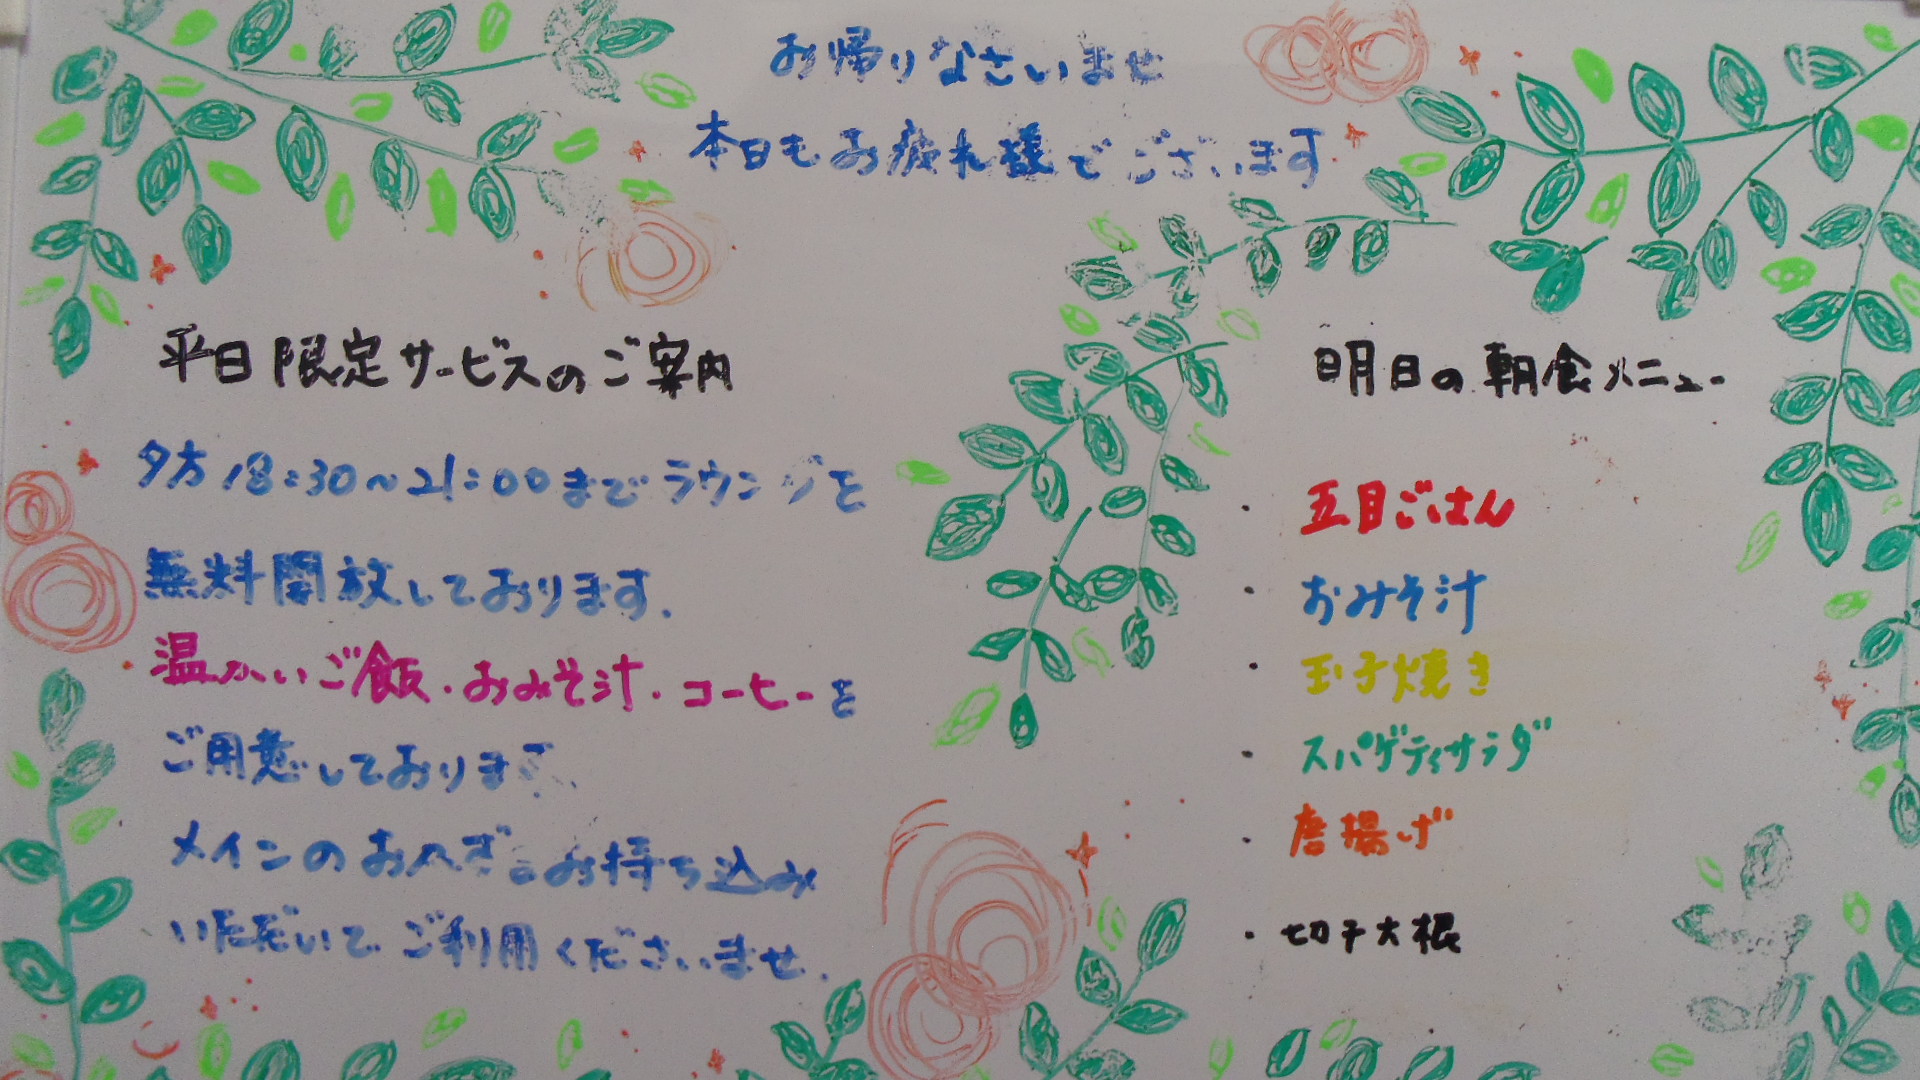 お帰りなさいませ
本日もお疲れ様でございます
平日限定サービスのご案内
夕方18:30~21:00までラウンジを
無料開放しております.
温かいご飯・おみそ汁・コーヒーを
ご用意しております.
メインのおかずをお持ち込み
いただいてご利用くださいませ.
明日の朝食メニュー
・五目ごはん
・おみそ汁
・玉子焼き
・スパゲティサラダ
・唐揚げ
・切干大根